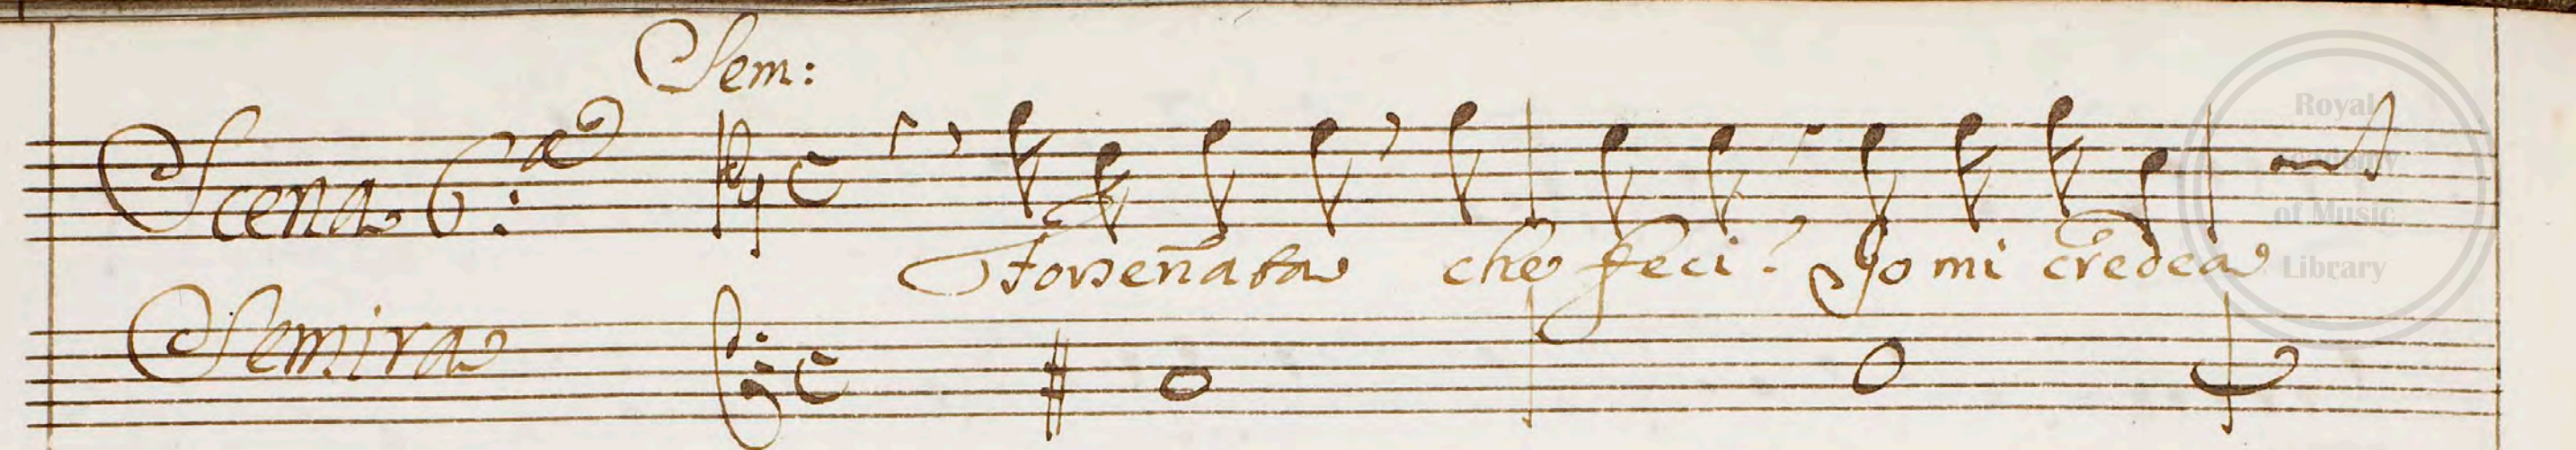 Sem:
Scena 6:a
Forsen̄ata che feci? Io mi credea
Semira
Royal
Academy
of Music
Library